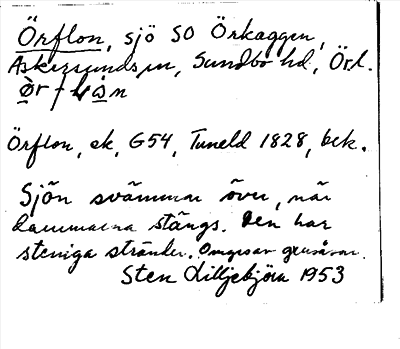 Örflon, sjö SO Örkaggen,
Askersunds sn, Sundbo hd, Örl.
Örflon, ek, G54, Tuneld 1828, bek.
Sjön svämmar över, när
dammarna stängs. Den har
steniga stränder. Omgesav grusåsar.
Sten Lilljebjörn 1953